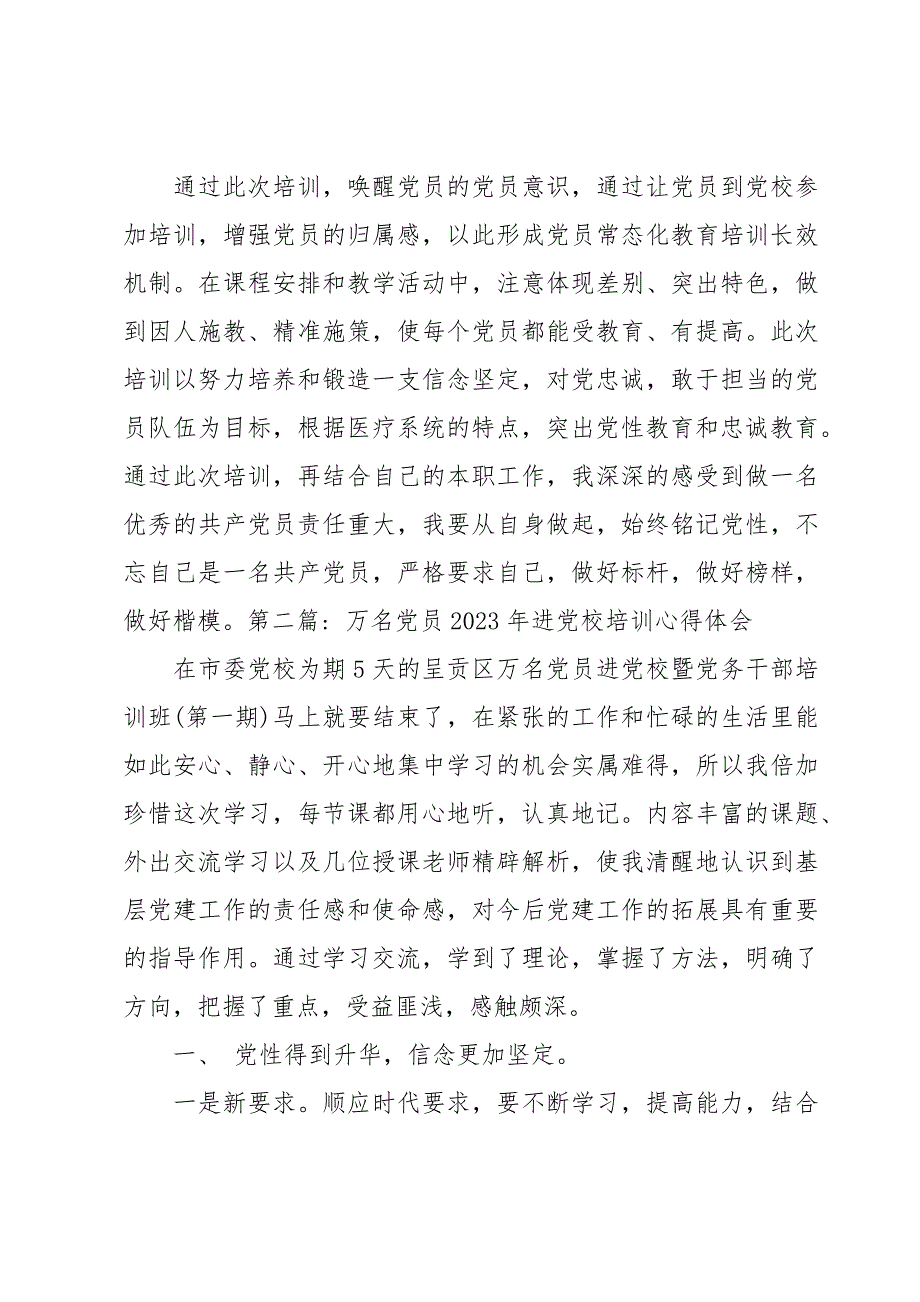 通过此次培训，唤醒党员的党员意识，通过让党员到党校参
加培训，增强党员的归属感，以此形成党员常态化教育培训长效
机制。在课程安排和教学活动中，注意体现差别、突出特色，做
到因人施教、精准施策，使每个党员都能受教育、有提高。此次
培训以努力培养和锻造一支信念坚定，对党忠诚，敢于担当的党
员队伍为目标，根据医疗系统的特点，突出党性教育和忠诚教育。
通过此次培训，再结合自己的本职工作，我深深的感受到做一名
优秀的共产党员责任重大，我要从自身做起，始终铭记党性，不
忘自己是一名共产党员，严格要求自己，做好标杆，做好榜样，
做好楷模。第二篇：万名党员2023年进党校培训心得体会
在市委党校为期5天的呈贡区万名党员进党校暨党务干部培
训班(第一期)马上就要结束了，在紧张的工作和忙碌的生活里能
如此安心、静心、开心地集中学习的机会实属难得，所以我倍加
珍惜这次学习，每节课都用心地听，认真地记。内容丰富的课题、
外出交流学习以及几位授课老师精辟解析，使我清醒地认识到基
层党建工作的责任感和使命感，对今后党建工作的拓展具有重要
的指导作用。通过学习交流，学到了理论，掌握了方法，明确了
方向，把握了重点，受益匪浅，感触颇深。
一、 党性得到升华，信念更加坚定。
一是新要求。顺应时代要求，要不断学习，提高能力，结合